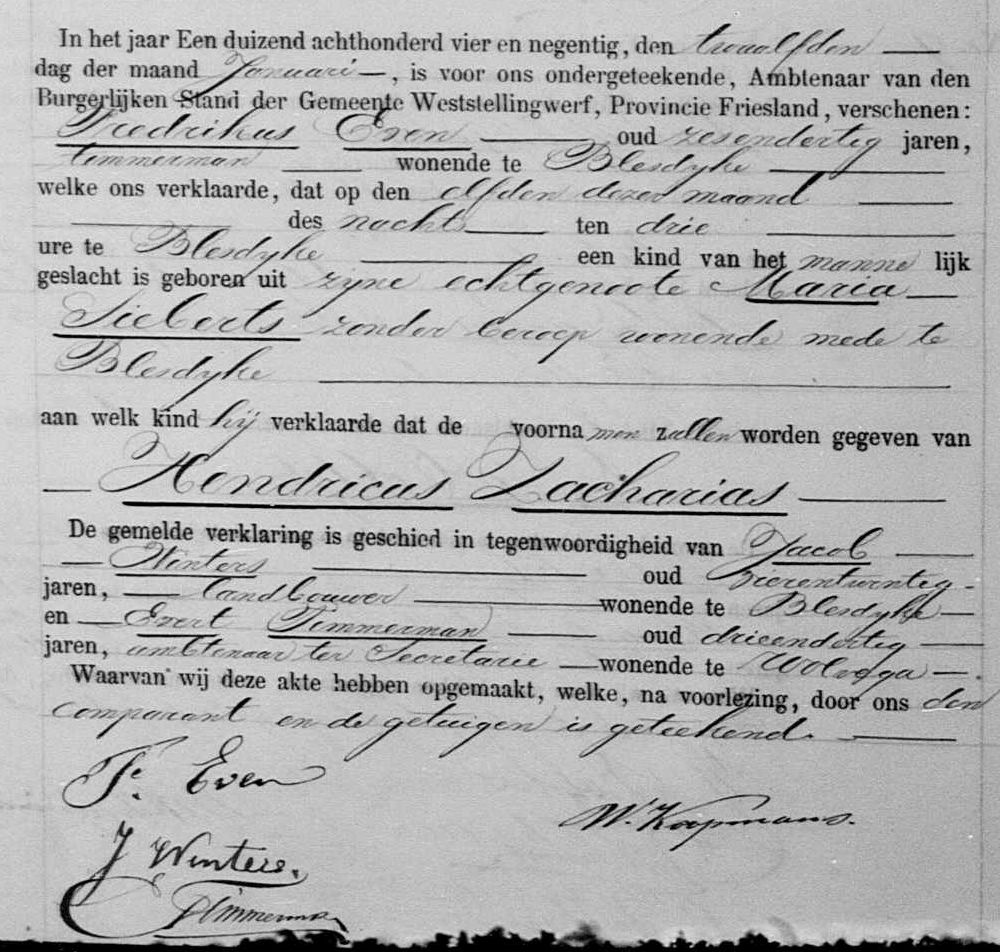 In het jaar Een duizend achthonderd vier en negentig, den twaalfden
dag der maand Januari, is voor ons ondergeteekende, Ambtenaar van den
Burgerlijken Stand der Gemeente Weststellingwerf, Provincie Friesland, verschenen:
Fredrikus Even oud zesendertig jaren,
timmerman wonende te Blesdyke
welke ons verklaarde, dat op den elfden dezer maand
des nachts ten drie
ure te Blesdyke een kind van het manne lijk
geslacht is geboren uit zyne echtgenoote Maria
Sieberts zonder beroep wonende mede te
Blesdyke
aan welk kind hij verklaarde dat de voorna men zullen worden gegeven van
Hendricus Zacharias
De gemelde verklaring is geschied in tegenwoordigheid van Jacob
Winters oud vierentwintig
jaren, landbouwer wonende te Blesdyke
en Evert Timmerman oud drieendertig
jaren, ambtenaar ter Secretarie wonende te Wolvega.
Waarvan wij deze akte hebben opgemaakt, welke, na voorlezing, door ons den
comparant en de getuigen is geteekend.
F. Even
W. Koopmans.
J Winters.
E Timmerman